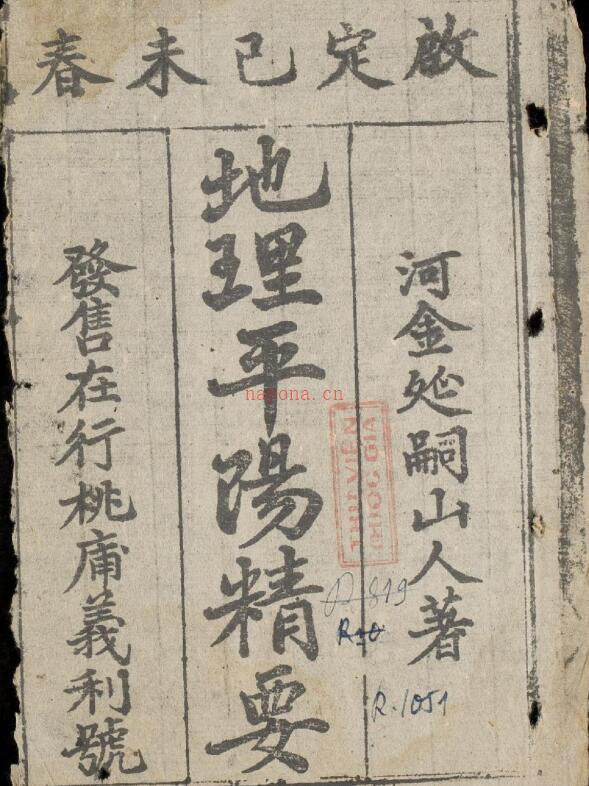 啟定己未春
河金処嗣山人著
地理平陽精要
發售在行桃庯義利號
napona.cn
THƯ VIỆN
QUỐC GIA
R.819
R.1051